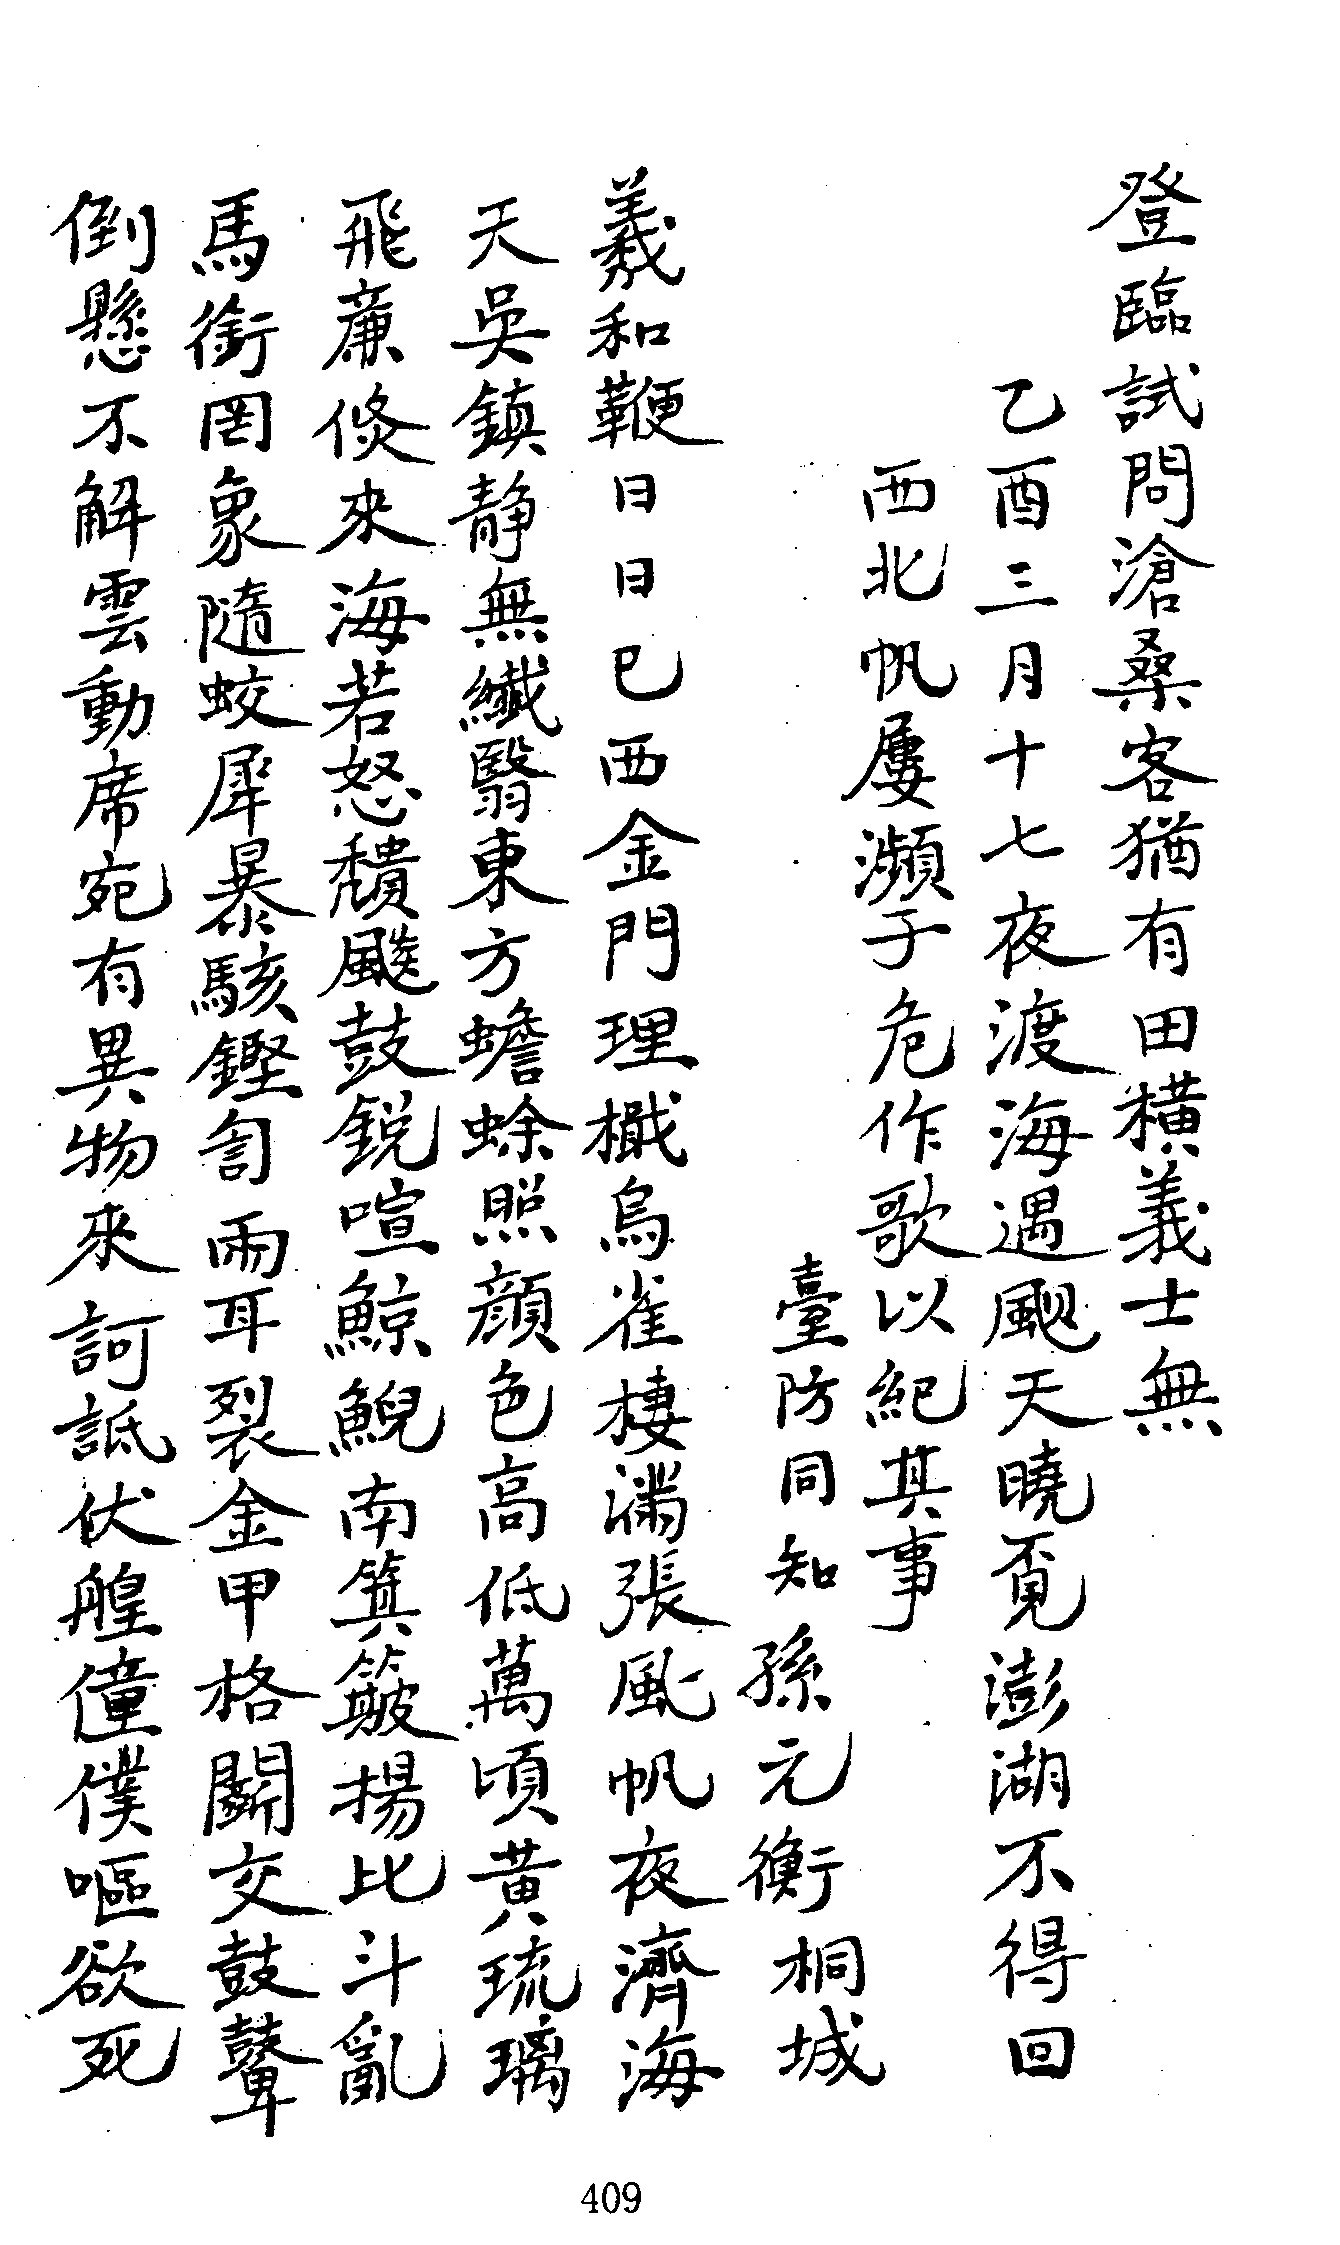 登臨試問滄桑客猶有田橫義士無
乙酉三月十七夜渡海遇颶天曉覓澎湖不得回
西北帆屢瀕于危作歌以紀其事
臺防同知孫元衡桐城
羲和鞭日日已西金門理檝烏雀棲滿張風帆夜濟海
天吳鎮静無纖翳東方蟾蜍照顏色高低萬頃黃琉璃
飛廉倐來海若怒頹飈鼓銳喧鯨鯢南箕簸揚比斗亂
馬銜罔象隨蛟犀暴駭鏗訇兩耳裂金甲格鬭交鼓鼙
倒懸不解雲動席宛有異物來訶詆伏艎僮僕嘔欲死
409